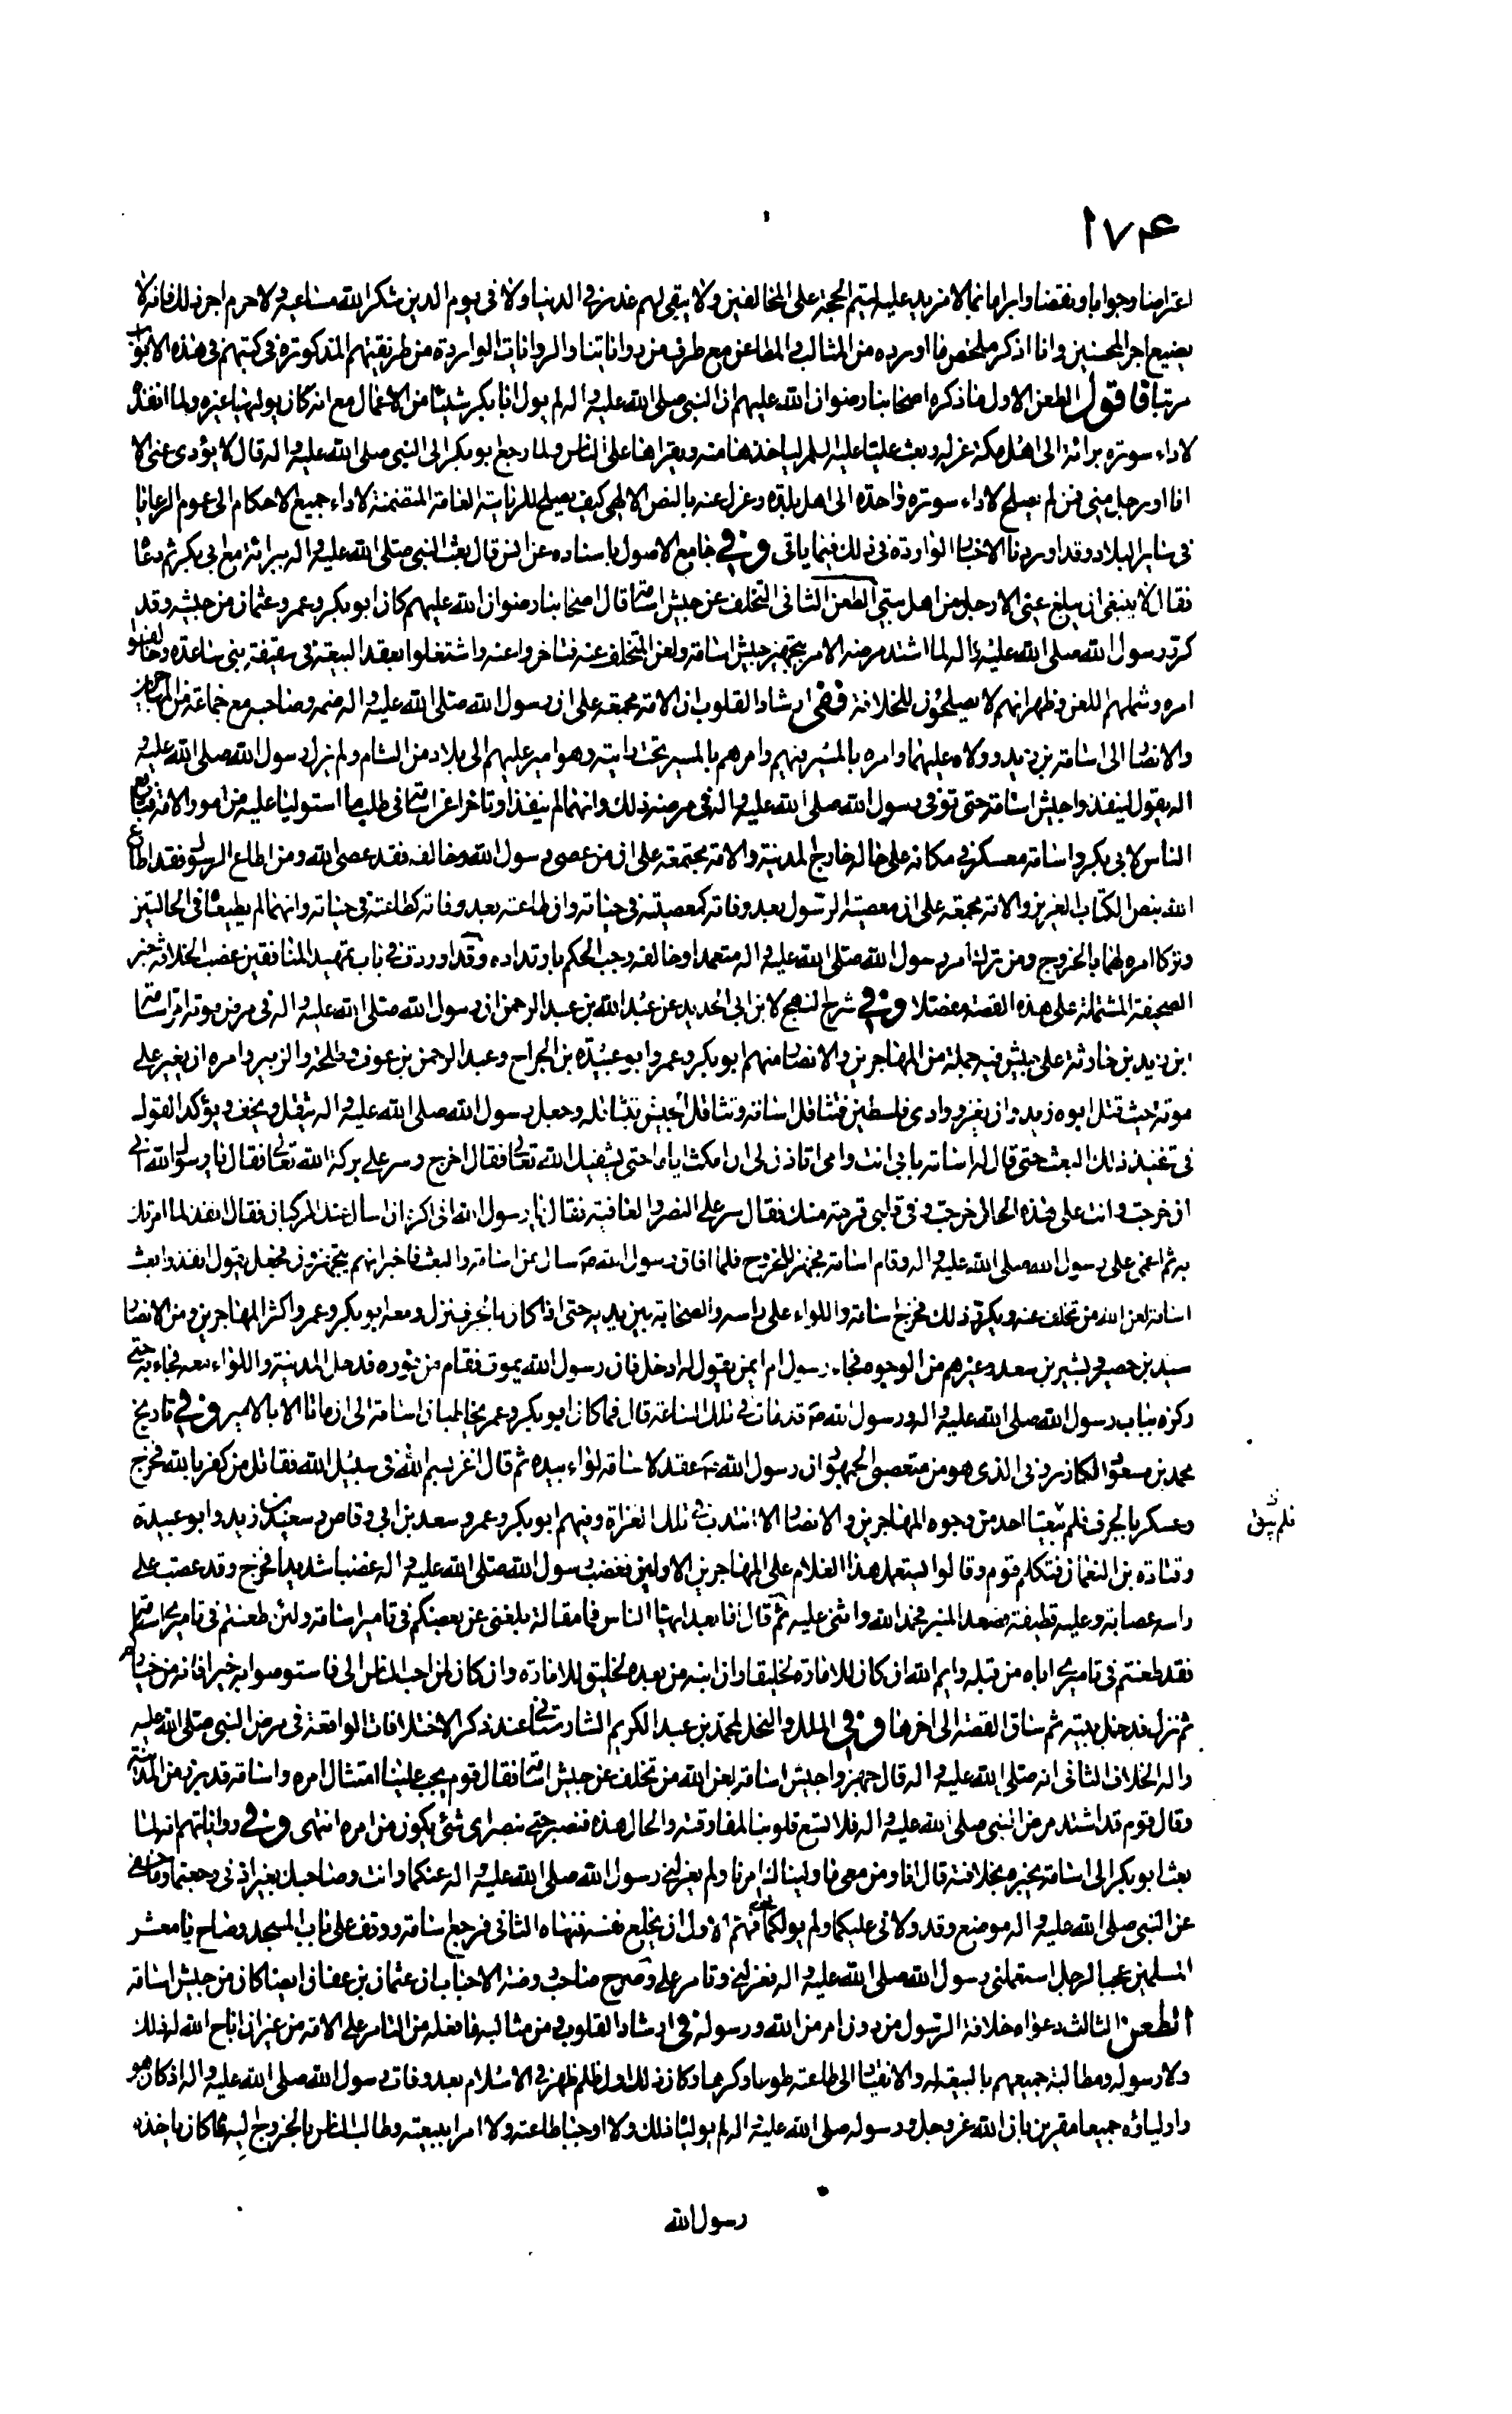 ١٧٤
اعتراضا وجوابا ونقضا وابراما بما لا مزيد عليه ليتم الحجة على المخالفين ولا يبقى لهم عذر في الدنيا ولا في يوم الدين شكر الله مساعيه ولا حرم اجر ذلك فانه لا
يضيع اجر المحسنين وانا اذكر ملخص ما اورده من المثالب والمطاعن مع طرف من رواياتنا والروايات الواردة من طريقتهم المذكورة في كتبهم في هذه الابواب
مرتبا فاقول الطعن الاول ما ذكره اصحابنا رضوان الله عليهم ان النبي صلى الله عليه واله لم يول ابا بكر شيئا من الاعمال مع انه كان يوليها غيره ولما انفذه
لاداء سورة برائة الى اهل مكة عزله وبعث عليا عليه السلم لياخذها منه ويقراها على الناس ولما رجع ابو بكر الى النبي صلى الله عليه واله قال لا يؤدى عنى الا
انا او رجل منى فمن لم يصلح لاداء سورة واحدة الى اهل بلدة وعزل عنه بالنص الالهى كيف يصلح للرياسة العامة المتضمنة لاداء جميع الاحكام الى عموم الرعايا
في ساير البلاد وقد اوردنا الاخبار الواردة في ذلك فيما ياتى وفي جامع الاصول باسناده عن انس قال بعث النبي صلى الله عليه واله ببرائة مع ابي بكر ثم دعا
فقال لا ينبغي ان يبلغ عنى الا رجل من اهل بيتي الطعن الثاني التخلف عن جيش اسامة قال اصحابنا رضوان الله عليهم كان ابو بكر وعمر وعثمان من جيشه وقد
كرر رسول الله صلى الله عليه واله لما اشتد مرضه الامر بتجهيز جيش اسامة ولعن المتخلف عنه فتاخروا عنه واشتغلوا بعقد البيعة في سقيفة بنى ساعدة وخالفوا
امره وشملهم اللعن وظهر انهم لا يصلحون للخلافة ففي ارشاد القلوب ان الامة مجمعة على ان رسول الله صلى الله عليه واله ضمه وصاحبه مع جماعة من المهاجرين
والانصار الى اسامة بن زيد وولاه عليهما وامره بالمسير بهم وامرهم بالمسير تحت رايته وهو امير عليهم الى بلاد من الشام ولم يزل رسول الله صلى الله عليه و
اله يقول لينفذوا جيش اسامة حتى توفي رسول الله صلى الله عليه واله في مرضه ذلك وانهما لم ينفذا وتاخرا عن اسامة في طلب ما استوليا عليه من امور الامة فبايع
الناس لابي بكر واسامة معسكر في مكانه على حاله خارج المدينة والامة مجتمعة على ان من عصى رسول الله وخالفه فقد عصى الله ومن اطاع الرسول فقد اطاع
الله بنص الكتاب العزيز والامة مجمعة على ان معصية الرسول بعد وفاته كمعصيته في حياته وان طاعته بعد وفاته كطاعته في حياته وانهما لم يطيعاه في الحالتين
وتركا امره لهما بالخروج ومن ترك امر رسول الله صلى الله عليه واله متعمدا وخالفه وجب الحكم بارتداده وقد اوردت في باب تمهيد المنافقين غصب الخلافة خبر
الصحيفة المشتملة على هذه القصة مفصلا وفي شرح النهج لابن ابي الحديد عن عبد الله بن عبد الرحمن ان رسول الله صلى الله عليه واله في مرض موته امر اسامة
بن زيد بن حارثة على جيش فيه جملة من المهاجرين والانصار منهم ابو بكر وعمر وابو عبيدة بن الجراح وعبد الرحمن بن عوف وطلحة والزبير وامره ان يغير على
موتة حيث قتل ابوه زيد وان يغزو وادى فلسطين فتثاقل اسامة وتثاقل الجيش بتثاقله وجعل رسول الله صلى الله عليه واله يثقل ويخف ويؤكد القول
في تنفيذ ذلك البعث حتى قال له اسامة بابى انت وامى اتاذن لي ان امكث اياما حتى يشفيك الله تعالى فقال اخرج وسر على بركة الله تعالى فقال يا رسول الله انى
ان خرجت وانت على هذه الحال خرجت وفي قلبى قرحة منك فقال سر على النصر والعافية فقال يا رسول الله انى اكره ان اسال عنك الركبان فقال انفذ لما امرتك
به ثم اغمى على رسول الله صلى الله عليه واله وقام اسامة فجهز للخروج فلما افاق رسول الله ص سال عن اسامة والبعث فاخبر انهم يتجهزون فجعل يقول انفذوا بعث
اسامة لعن الله من تخلف عنه ويكرر ذلك فخرج اسامة واللواء على راسه والصحابة بين يديه حتى اذا كان بالجرف نزل ومعه ابو بكر وعمر واكثر المهاجرين ومن الانصار
سيد بن حصير وبشير بن سعد وغيرهم من الوجوه فجاء رسول ام ايمن يقول له ادخل فان رسول الله يموت فقام من فوره فدخل المدينة واللواء معه فجاء به حتى
ركزه بباب رسول الله صلى الله عليه واله ورسول الله ص قد مات في تلك الساعة قال فما كان ابو بكر وعمر يخاطبان اسامة الى ان ماتا الا بالامير وفي تاريخ
محمد بن مسعود الكازروني الذى هو من متعصبى الجمهور ان رسول الله ص عقد لاسامة لواء بيده ثم قال اغز بسم الله في سبيل الله فقاتل من كفر بالله فخرج
وعسكر بالجرف فلم يبق احد من وجوه المهاجرين والانصار الا انتدب في تلك الغزاة وفيهم ابو بكر وعمر وسعد بن ابي وقاص وسعيد بن زيد وابو عبيدة
فلم يبق
وقتادة بن النعمان فتكلم قوم وقالوا يستعمل هذا الغلام على المهاجرين الاولين فغضب رسول الله صلى الله عليه واله غضبا شديدا فخرج وقد عصب على
راسه عصابة وعليه قطيفة فصعد المنبر فحمد الله واثنى عليه ثم قال اما بعد ايها الناس فما مقالة بلغتنى عن بعضكم في تاميرى اسامة ولئن طعنتم في تاميرى اسامة
فقد طعنتم في تاميرى اباه من قبله وايم الله ان كان للامارة لخليقا وان ابنه من بعده لخليق للامارة وان كان لمن احب الناس الى فاستوصوا به خيرا فانه من خياركم
ثم نزل فدخل بيته ثم ساق القصة الى اخرها وفي الملل والنحل لمحمد بن عبد الكريم الشهرستانى عند ذكر الاختلافات الواقعة في مرض النبي صلى الله عليه
واله الخلاف الثاني انه صلى الله عليه واله قال جهزوا جيش اسامة لعن الله من تخلف عن جيش اسامة فقال قوم يجب علينا امتثال امره واسامة قد برز من المدينة
وقال قوم قد اشتد مرض النبي صلى الله عليه واله فلا تسع قلوبنا لمفارقته والحال هذه فنصبر حتى نبصر اى شئ يكون من امره انتهى وفي رواياتهم انه لما
بعث ابو بكر الى اسامة يخبره بخلافته قال انا ومن معى ما وليناك امرنا ولم يعزلنى رسول الله صلى الله عليه واله عنكما وانت وصاحبك بغير اذنى رجعتما وما خفى
عن النبي صلى الله عليه واله موضع وقد ولانى عليكما ولم يولكما فهم الاول ان يخلع نفسه فنهاه الثاني فرجع اسامة ووقف على باب المسجد وصاح يا معشر
المسلمين عجبا لرجل استعملنى رسول الله صلى الله عليه واله فعزلنى وتامر على وصرح صاحب روضة الاحباب ان عثمان بن عفان ايضا كان من جيش اسامة
الطعن الثالث دعواه خلافة الرسول من دون امر من الله ورسوله ففي ارشاد القلوب ومن مثالبه ما فعله من التامر على الامة من غير ان اباح الله له ذلك
ولا رسوله ومطالبة جميعهم بالبيعة له والانقياد الى طاعته طوعا وكرها وكان ذلك اول ظلم ظهر في الاسلام بعد وفات رسول الله صلى الله عليه واله اذ كان هو
واولياؤه جميعا مقرين بان الله عز وجل ورسوله صلى الله عليه واله لم يوليا ذلك ولا اوجبا طاعته ولا امرا ببيعته وطالب الناس بالخروج اليه مما كان ياخذه
رسول الله